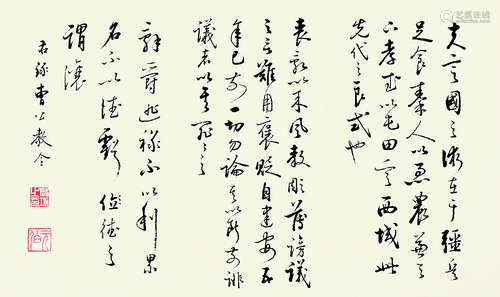 夫定國之術在于彊兵
足食秦人以急農兼天
下孝武以屯田定西域此
先代之良式也
喪亂以來風教彫薄謗議
之言難用褒貶自建安五
年已前一切勿論其以斷前誹
議者以其罪罪之
辭爵逃祿不以利累
名不以位虧德之
謂讓
右錄曹公教令